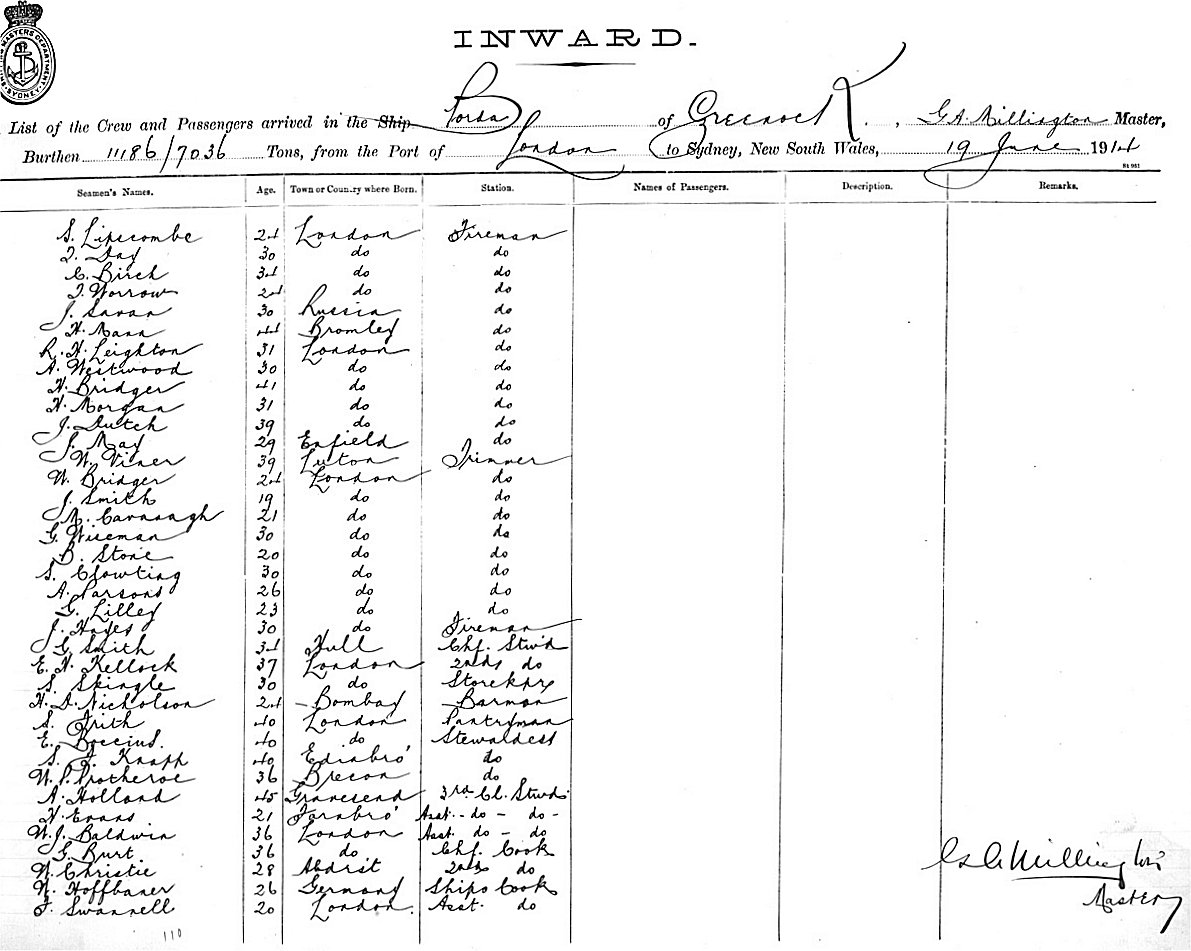 SHIPPING MASTERS DEPARTMENT SYDNEY
INWARD.
List of the Crew and Passengers arrived in the Ship Borda of Greenock, G.A. Millington Master,
Burthen 11186/7036 Tons, from the Port of London to Sydney, New South Wales, 19 June 1914
St 951
Seamen's Names. Age. Town or Country where Born. Station. Names of Passengers. Description. Remarks.
S. Lipscombe 24 London Fireman
Day 30 do do
C. Birch 34 do do
Worrow 24 do do
J. Savan 30 Russia do
H. Mann 44 Bromley do
R. H. Leighton 31 London do
A. Westwood 30 do do
H. Bridger 41 do do
H. Morgan 31 do do
J. Dutch 39 do do
J. May 29 Enfield do
W. Viner 39 Luton Trimmer
W. Bridger 24 London do
J. Smith 19 do do
M. Cavanagh 21 do do
G. Wiseman 30 do do
B. Stone 20 do do
S. Clowting 30 do do
A. Parsons 26 do do
G. Lilley 23 do do
J. Hayes 30 do Fireman
G. Smith 34 Hull Chf. Stwd
E. H. Kellock 37 London 2nd do
S. Skingle 30 do Storekpr
H. D. Nicholson 24 Bombay Barman
S. Frith 40 London Pantryman
E. Boccius. 40 do Stewaldess
S. Knapp 40 Edinbro' do
W. P. Protheroe 36 Brecon do
A. Holland 45 Gravesend 3rd Cl. Stwd.
H. Evans 21 Farnbro' Asst. - do - do -
W. J. Baldwin 36 London Asst. do - do
G. Burt. 36 do Chf. Cook
W. Christie 28 2nd do
Hoffbaner 26 Germany Ships Cook
F. Swannell 20 London. Asst. do
G A Millington
Master
110